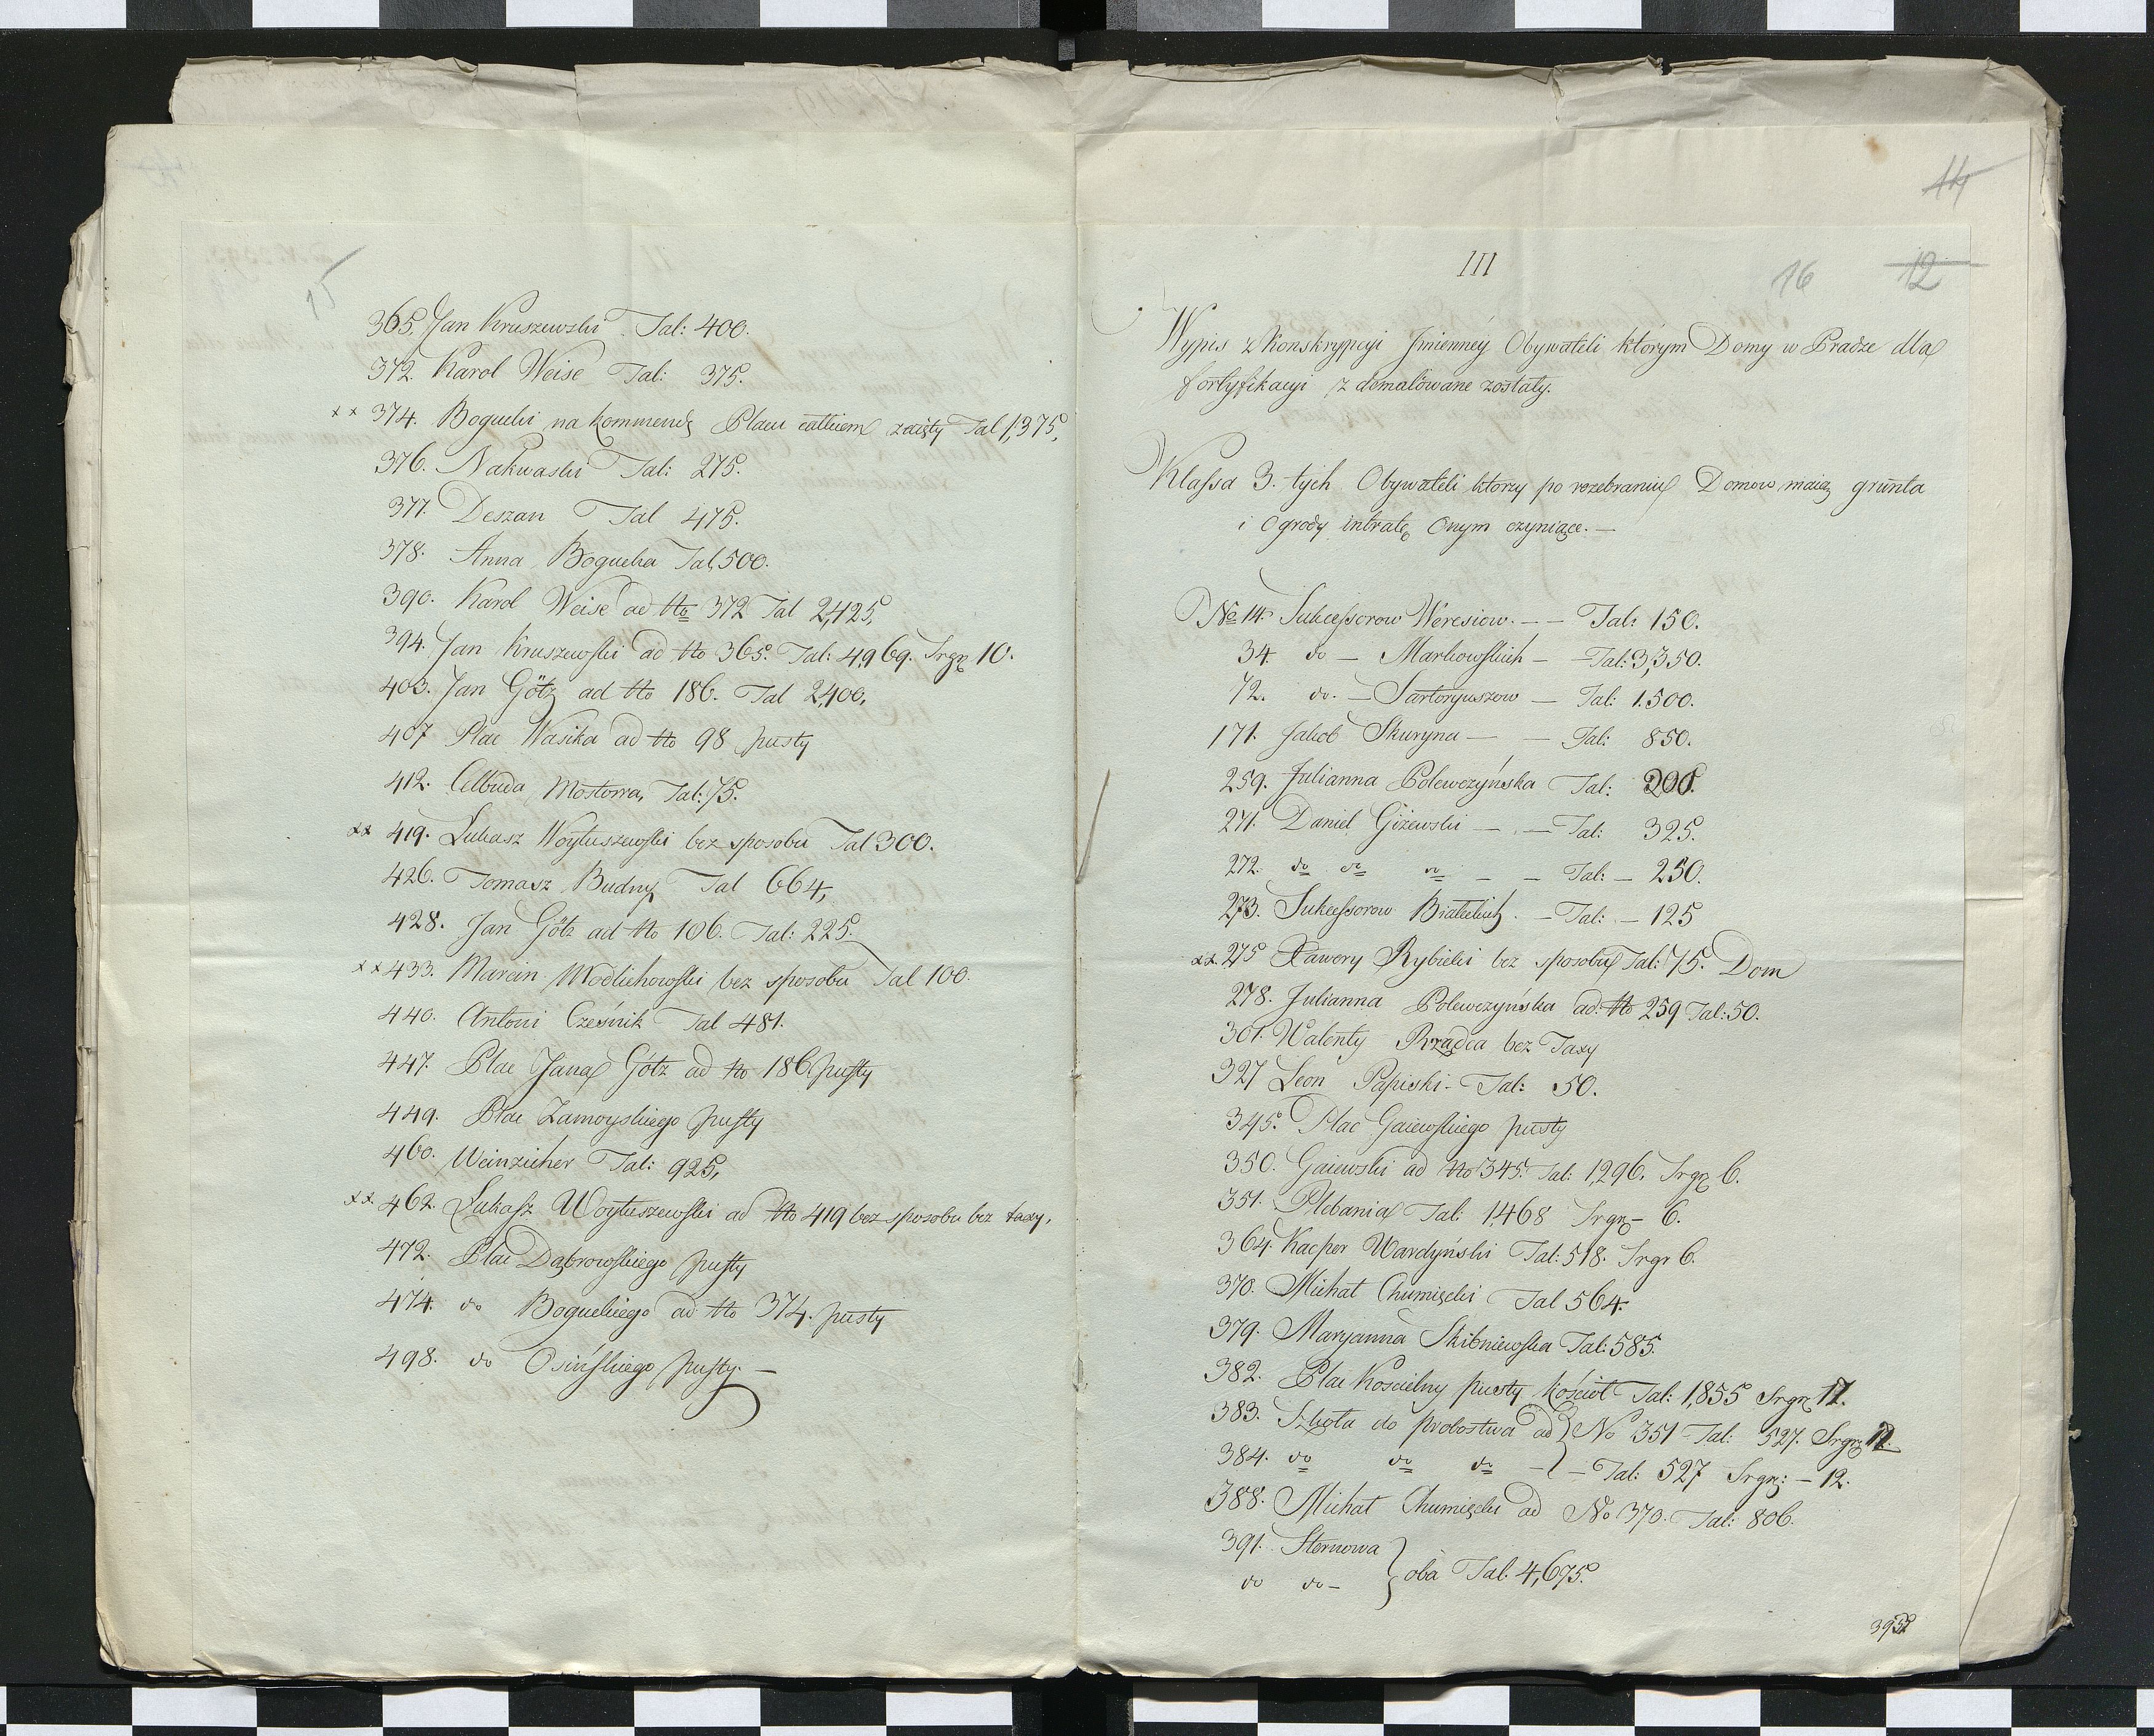 15
365. Jan Kruszewski Tal: 400.
372. Karol Weise Tal: 375.
×× 374. Bogucki na kommendę Placu całkiem zaięty Tal 1,375,
376. Nakwaski Tal: 275.
377. Deszan Tal 475.
378. Anna Bogucka Tal, 500.
390. Karol Weise ad No 372 Tal 2,425,
394. Jan Kruszewski ad No 365. Tal: 4,969. Srgr 10.
403. Jan Götz ad No 186. Tal 2,400,
407 Plac Wasika ad No 98 pusty
412. Celbuda Mostowa, Tal: 75.
×× 419. Lukasz Woytuszewski bez sposobu Tal 300.
426. Tomasz Budny Tal 664,
428. Jan Götz ad No 106. Tal: 225.
×× 433. Marcin Modlichowski bez sposobu Tal 100.
440. Antoni Cześnik Tal 481.
447. Plac Jana Götz ad No 186 pusty
449. Plac Zamoyskiego pusty
460. Weinzieher Tal: 925,
×× 462. Lukasz Woytuszewski ad No 419 bez sposobu bez taxy,
472. Plac Dąbrowskiego pusty
474. do Boguckiego ad No 374. pusty
498. do Osińskiego pusty. —
14
III
16 12
Wypis z Konskrypcyi Jmienney Obywateli którym Domy w Pradze dla
fortyfikacyi zdemolowane zostały.
Klassa 3. tych Obywateli ktorzy po rozebraniu Domow maią grunta
i Ogrody intratę Onym czyniące. —
No 14. Sukcessorow Weresiow. — — Tal: 150.
34. do — Markowskich — — Tal: 3,350.
72. do. — Sartoryuszow — Tal: 1.500.
171. Jakob Skuryna — — Tal: 850.
259. Julianna Polewczyńska Tal: 200.
271. Daniel Giżewski — — Tal: 325.
272. do do do — — Tal: — 250.
273. Sukcessorow Białeckich. — Tal: — 125
××. 275 Xawery Rybicki bez sposobu Tal: 75. Dom
278. Julianna Polewczyńska ad: No 259 Tal: 50.
301. Walenty Rządca bez Taxy
327 Leon Papiski - Tal: 50.
345. Plac Gaiewskiego pusty
350. Gaiewski ad No 345. Tal: 1,296. Srgr 6.
351. Plebania Tal: 1,468 Srgr — 6.
364. Kacper Wardyński Tal: 518. Srgr 6.
370. Michał Chumięcki Tal 564.
379. Maryanna Skibniewska Tal: 585.
382. Plac Koscielny pusty Kościół Tal: 1,855 Srgr 12.
383. Szkoła do probostwa ad No 351 Tal: 527. Srgr 12.
384. do do do — — Tal: 527 Srgr: — 12.
388. Michał Chumięcki ad No 370. Tal: 806.
391. Sternowa
do do — oba Tal. 4,675.
395